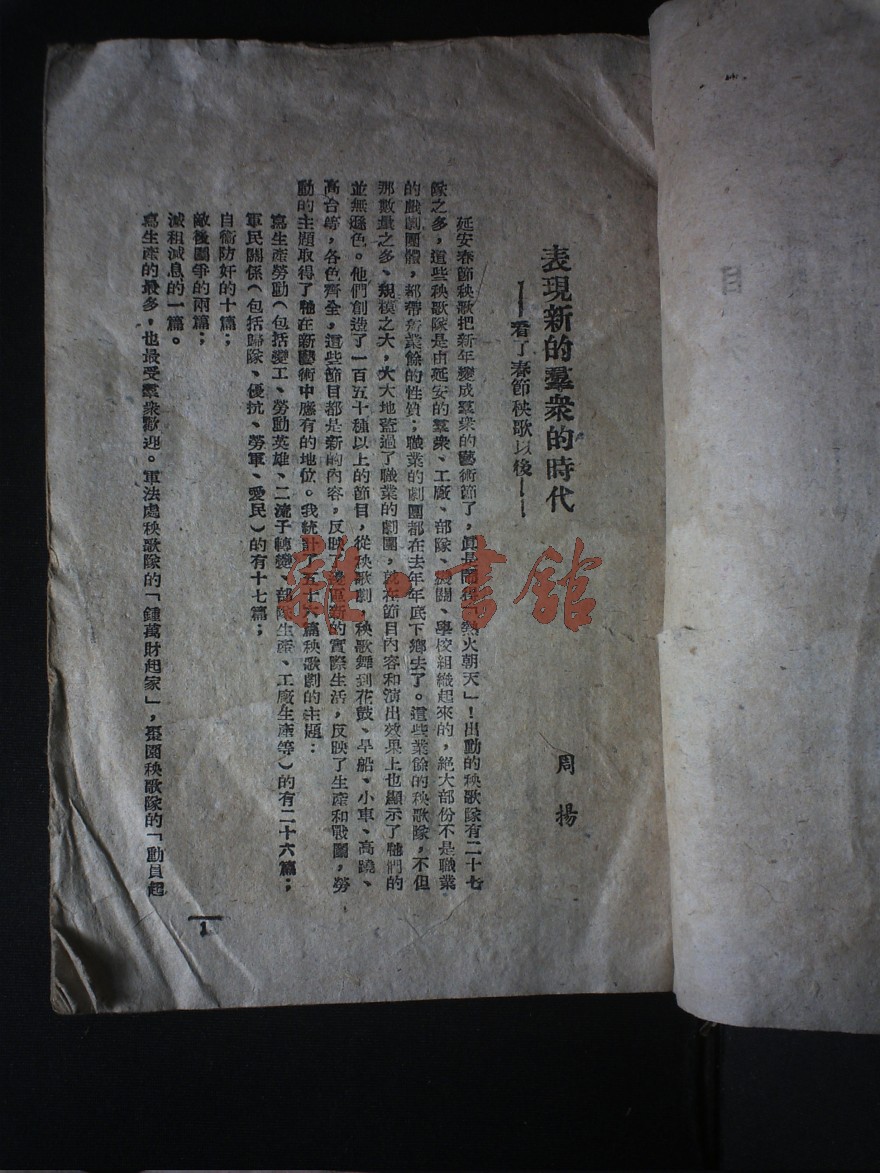 表現新的羣衆的時代
——看了春節秧歌以後——
周揚
延安春節秧歌把新年變成羣衆的藝術節了，眞是鬧得「熱火朝天」！出動的秧歌隊有二十七
隊之多，這些秧歌隊是由延安的羣衆、工廠、部隊、機關、學校組織起來的，絕大部份不是職業
的戲劇團體，都帶有業餘的性質；職業的劇團都在去年年底下鄉去了。這些業餘的秧歌隊，不但
那數量之多、規模之大，大大地蓋過了職業的劇團，就在節目內容和演出效果上也顯示了牠們的
並無遜色。他們創造了一百五十種以上的節目，從秧歌劇，秧歌舞到花鼓、旱船、小車、高蹺、
高台等，各色齊全，這些節目都是新的內容，反映了邊區新的實際生活，反映了生產和戰鬭，勞
動的主題取得了牠在新藝術中應有的地位。我統計了五十六篇秧歌劇的主題：
寫生產勞動（包括變工、勞動英雄、二流子轉變、部隊生產、工廠生產等）的有二十六篇；
軍民關係（包括歸隊、優抗、勞軍、愛民）的有十七篇；
自衛防奸的十篇；
敵後鬭爭的兩篇；
減租減息的一篇。
寫生產的最多，也最受羣衆歡迎。軍法處秧歌隊的「鍾萬財起家」，棗園秧歌隊的「動員起
1
雜·書館